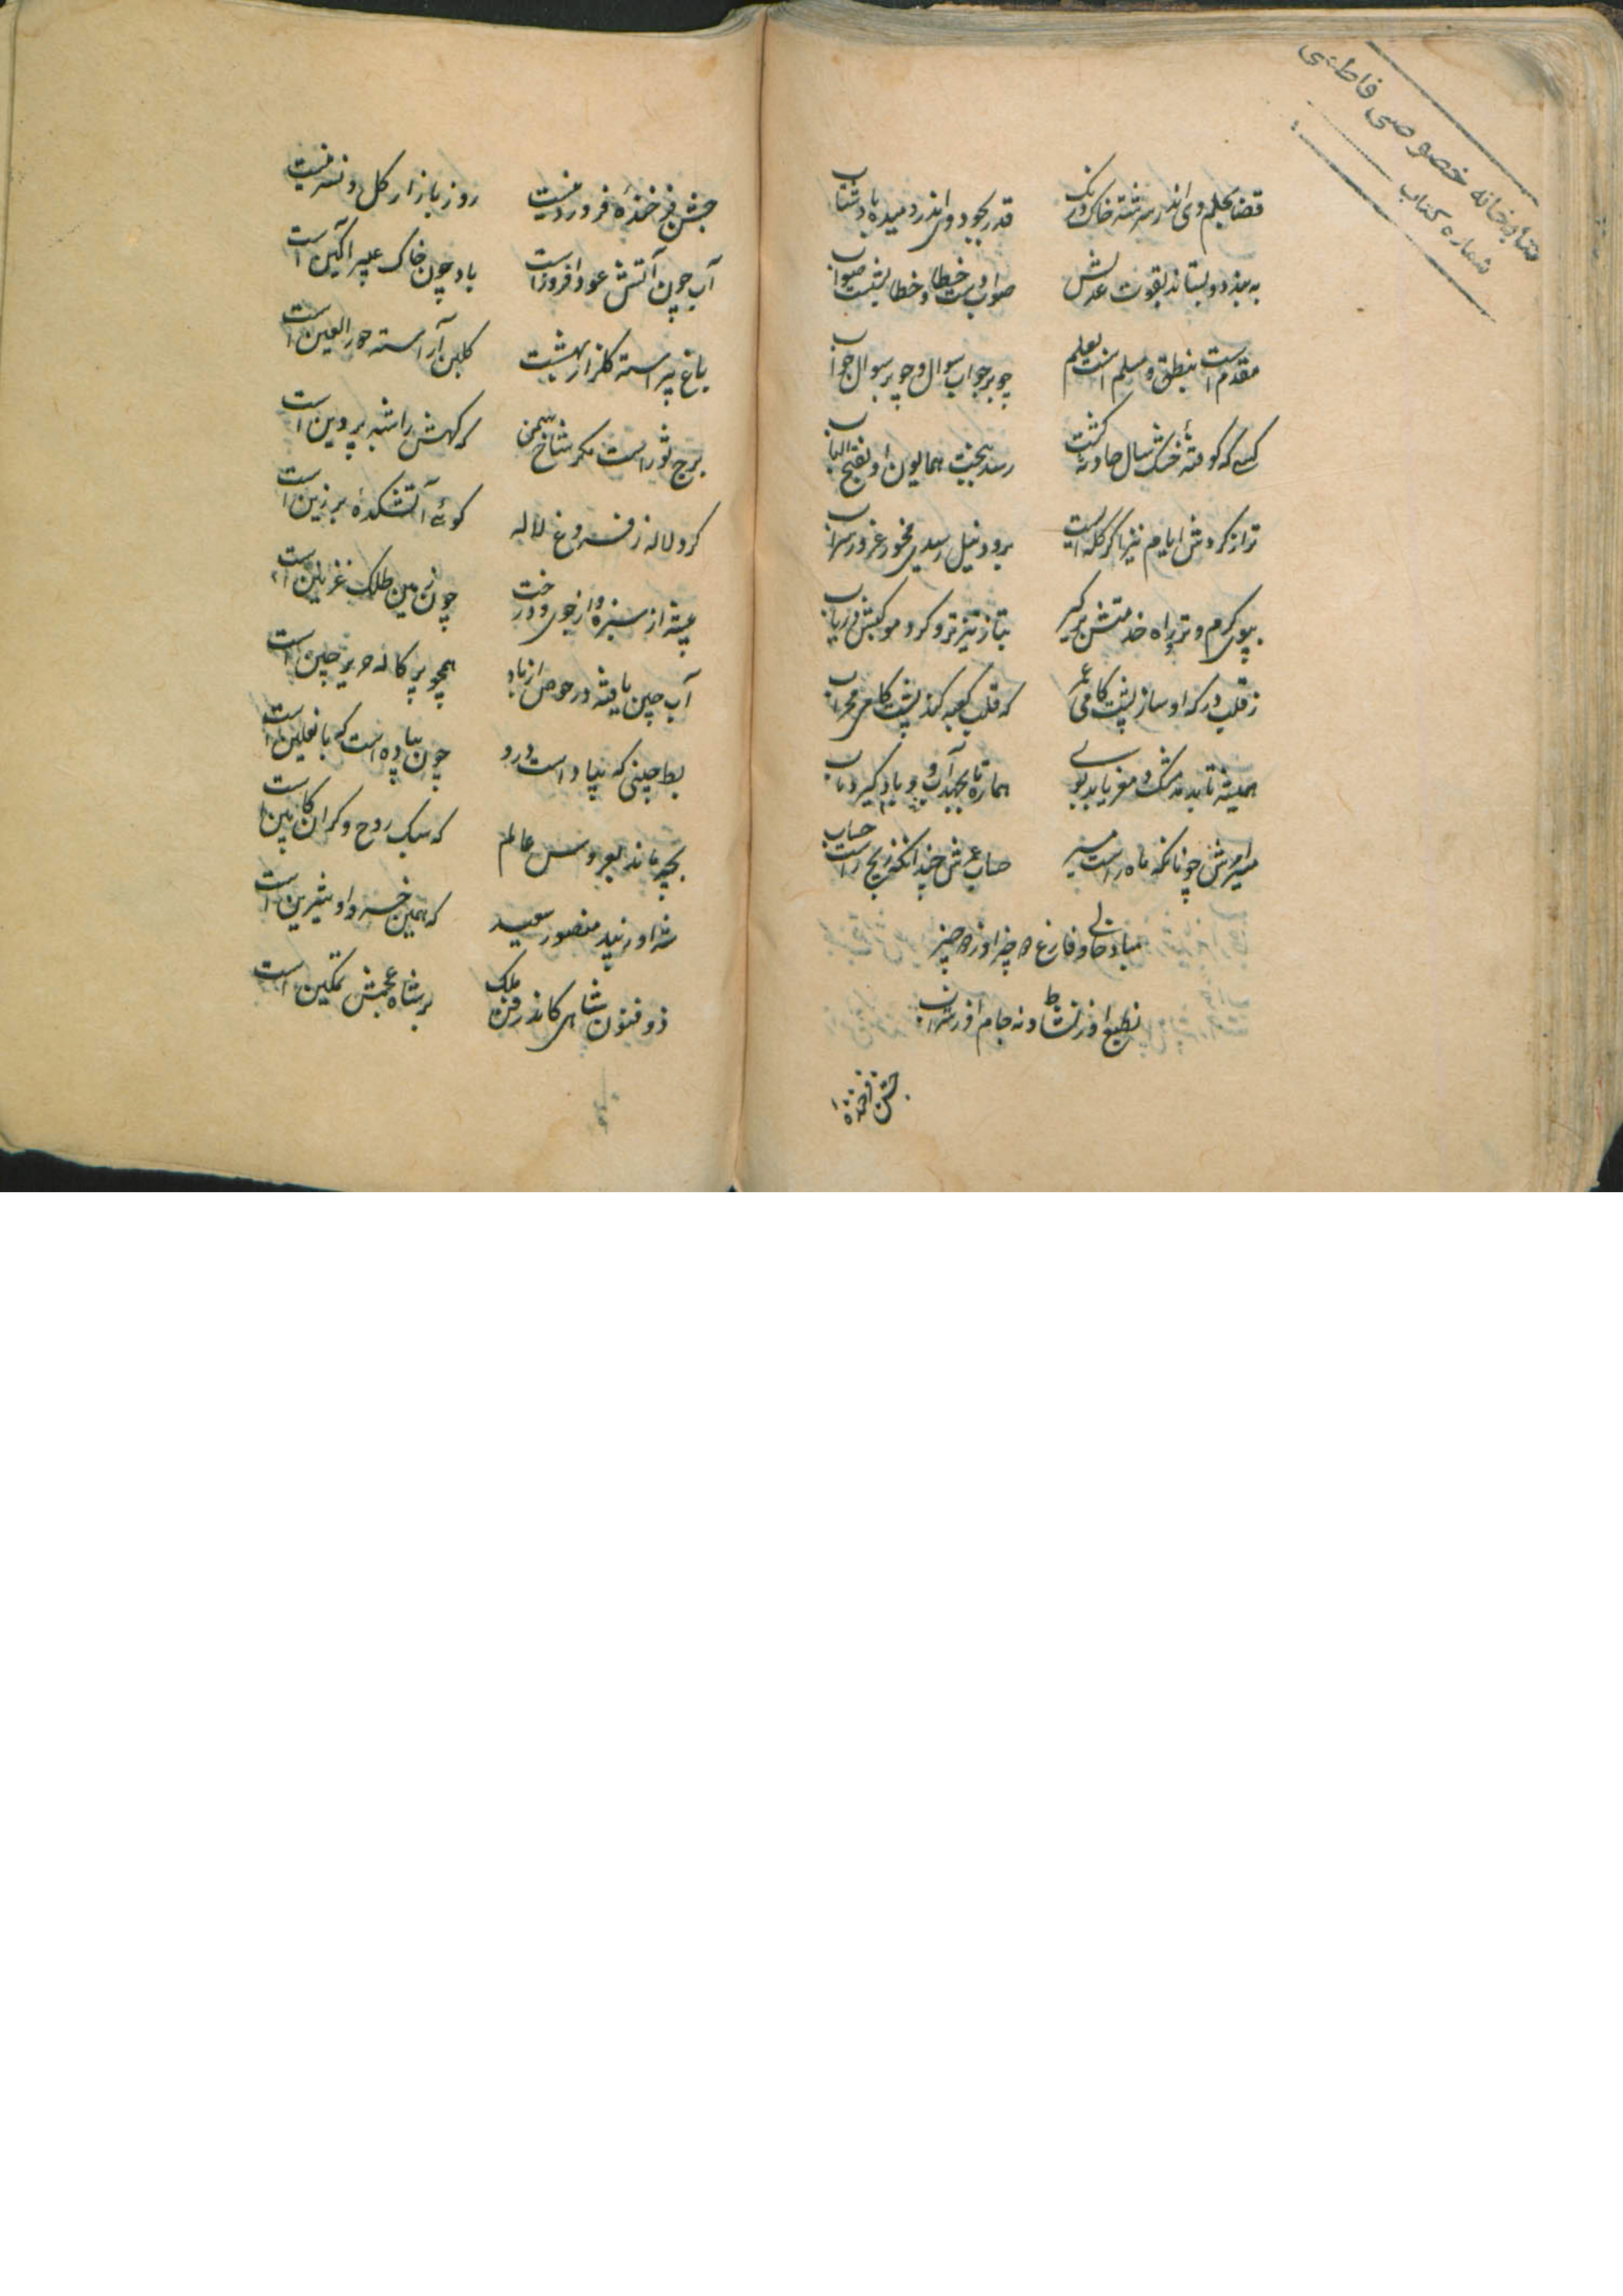 کتابخانه خصوصی فاطمی
شماره کتاب
قضا بحلم وی اندر سرشته خاک درنک قدر بجود وی اندر دمیده باد شتاب
به بندد و بستاند بقوت عدلش صواب دست خطا و خطا بشست صواب
مقدم است بنطق و مسلم است بعلم چو بر جواب سوال و چو بر سوال جواب
کسی که کوفتهٔ خشک سال حادثه کشت رسد ببخت همایون او بفتح الباب
ترا ز کردش ایام نیز اکر کله ایست برود نیل رسیدی مخور غرور سراب
بپوی کرم و تو راه خدمتش بر کیر بتاز تیزتر و کرد موکبش دریاب
ز قلب درکه او ساز پشت کامی عمر که قلب کعبه کند پشت کامی محراب
همیشه تا بدمد مشک و مغز یابد بوی هماره تا بجهد آب و باد کیرد
مسیر امرش چونانکه ماه راست مسیر حساب عمرش چندانکه زیج راست حساب
مباد خالی و فارغ دو چیز او ز دو چیز
نه طبع او ز نشاط و نه جام او ز شراب
جشن فرخندهٔ
جشن فرخندهٔ فروردینست روز بازار کل و نسرینست
آب چون آتش عود افروز است باد چون خاک عبیر آکین است
باغ پیراسته کلزار بهشت کلبن آراسته حور العین است
برج ثور است مکر شاخ سمن که کلش را شبه پروین است
کرد لاله ز فروغ لاله کوئی آتشکدهٔ برزین است
پشته از سبزه و از جوی و درخت چون زمین ملک غزنین است
آب چین یافته در حوض از باد همچو پرکاله حریر چین است
بط چینی که بباد است درو چون پیاده است که با نعلین است
بچه ماند بعروس عالم که سبک روح و کران کابین است
شه اورنید منصور سعید که همین خسرو او شیرین است
ذوفنون شاهی کاندر فن ملک بر شاه عجمش تمکین است